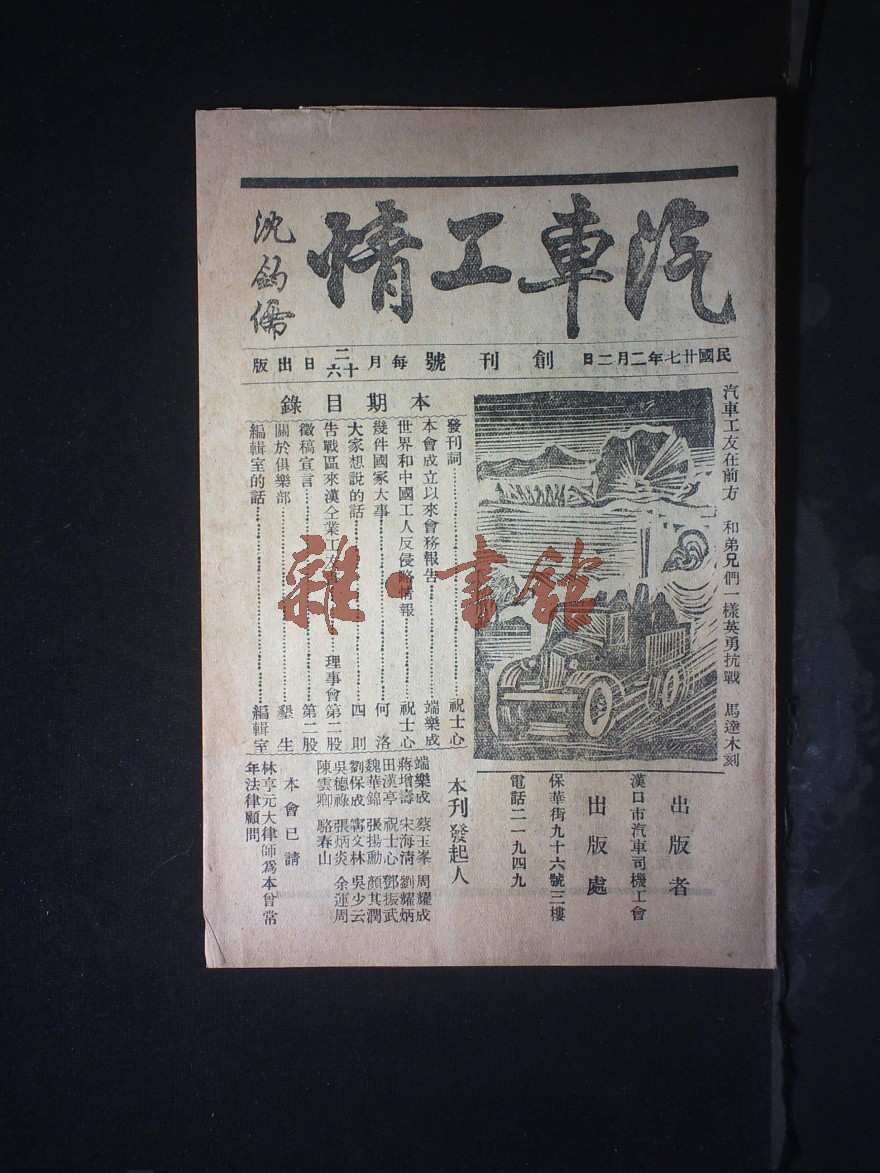 汽車工情
沈鈞儒
民國廿七年二月二日 創刊號 每月二十六日出版
汽車工友在前方 和弟兄們一樣英勇抗戰 馬達木刻
本期目錄
發刊詞 祝士心
本會成立以來會務報告 端樂成
世界和中國工人反侵略情報 祝士心
幾件國家大事 何洛
大家想說的話 四則
告戰區來漢仝業工友 理事會第二股
徵稿宣言 第二股
關於俱樂部 墾生
編輯室的話 編輯室
出版者
漢口市汽車司機工會
出版處
保華街九十六號三樓
電話二一九四九
本刊發起人
端樂成 蔡玉峯 周耀成
蔣增壽 宋海清 劉耀炳
田漢亭 祝士心 鄧振武
魏華錦 張揚勳 顏其潤
劉保成 甯文林 吳少云
吳德祿 張炳炎 余運周
陳雲卿 駱春山
本會已請
林亨元大律師爲本會常
年法律顧問
雜·書館